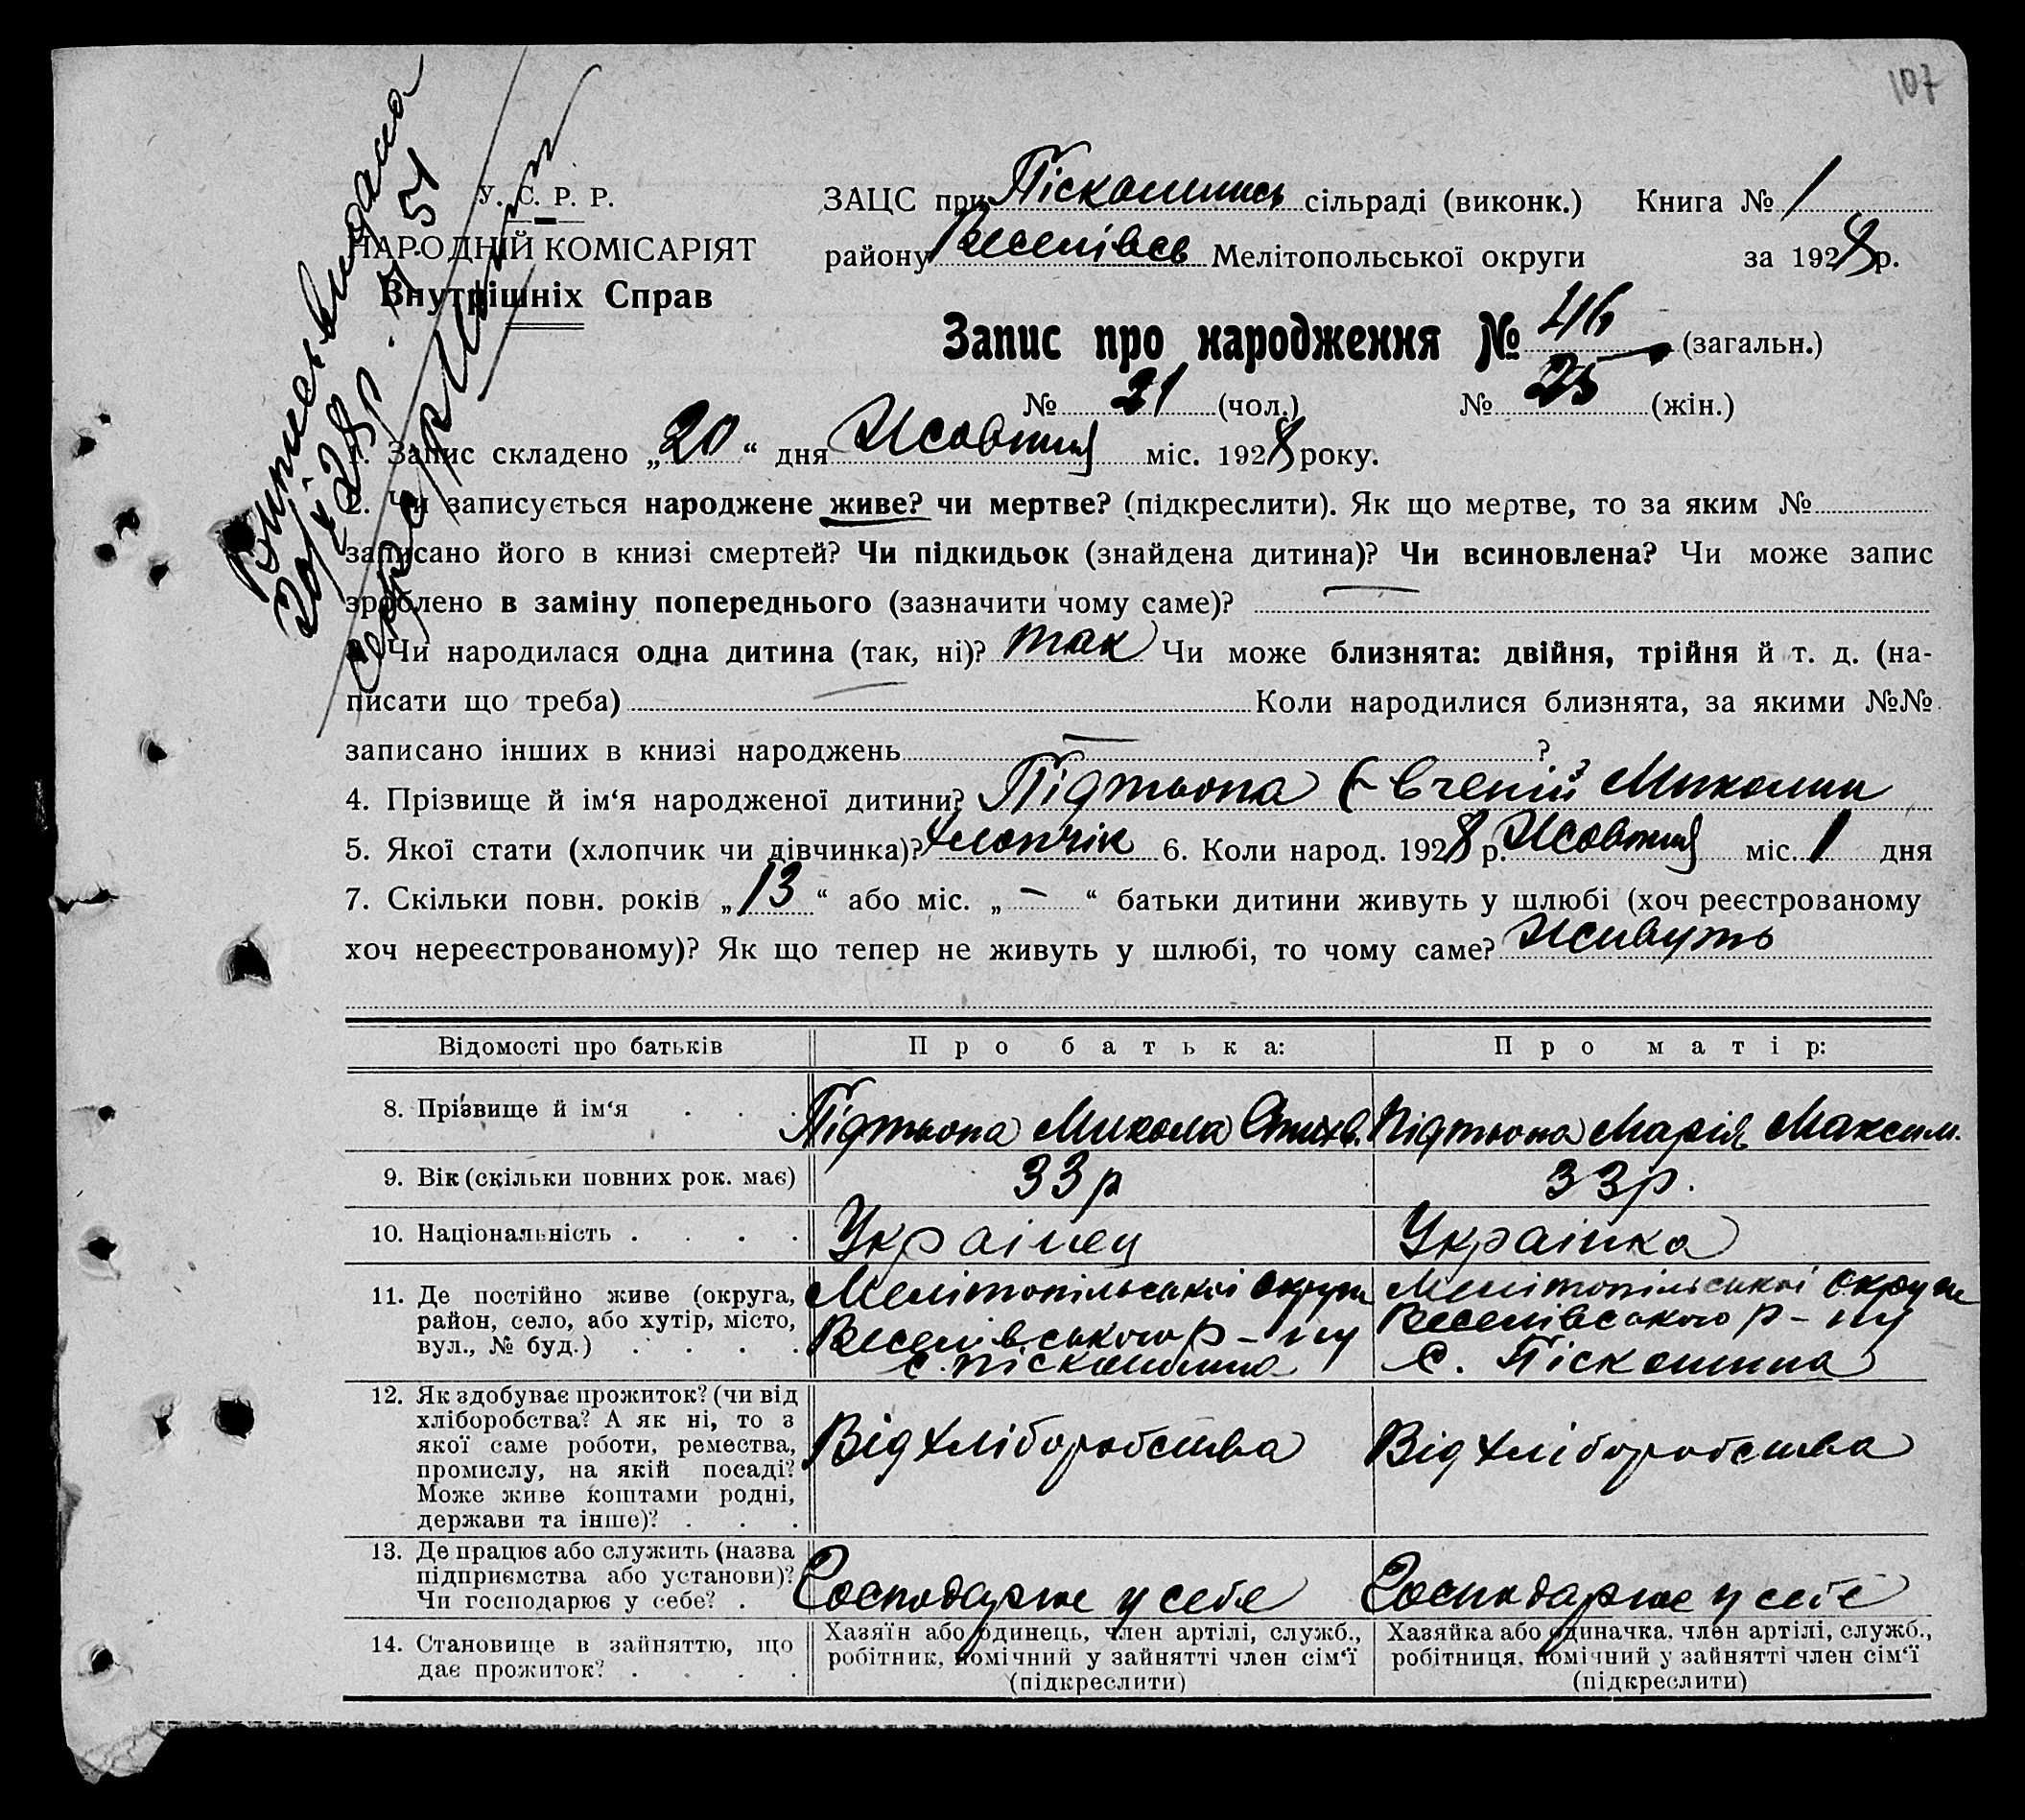 107
Виписьвидана
20/X-28р. № 51
У. С. Р. Р.
НАРОДНІЙ КОМІСАРІЯТ
Внутрішніх Справ
ЗАЦС при Піскошинсь сільраді (виконк.) Книга № 1
району Веселівсь Мелітопольської округи за 1928 р.
Запис про народження № 46 (загальн.)
№ 21 (чол.) № 25 (жін.)
1. Запис складено „20“ дня Жовтня міс. 1928 року.
2. Чи записується народжене живе? чи мертве? (підкреслити). Як що мертве, то за яким №
записано його в книзі смертей? Чи підкидьок (знайдена дитина)? Чи всиновлена? Чи може запис
зроблено в заміну попереднього (зазначити чому саме)? —
Чи народилася одна дитина (так, ні)? так Чи може близнята: двійня, трійня й т. д. (на-
писати що треба) — Коли народилися близнята, за якими №№
записано інших в книзі народжень — ?
4. Прізвище й ім‘я народженої дитини? Підтьопа Євгеній Миколин
5. Якої стати (хлопчик чи дівчинка)? Хлопчік 6. Коли народ. 1928 р. Жовтня міс. 1 дня
7. Скільки повн. років „13“ або міс. „—“ батьки дитини живуть у шлюбі (хоч реєстрованому
хоч нереєстрованому)? Як що тепер не живуть у шлюбі, то чому саме? Живуть
Відомості про батьків Про батька: Про матір:
8. Прізвище й ім‘я . . . Підтьопа Микола Підтьопа Марія Максим.
9. Вік (скільки повних рок. має) 33р 33р.
10. Національність . . . . Украінец Украінка
11. Де постійно живе (округа, район, село, або хутір, місто, вул., № буд.) . . . .
Мелітопільськоі Округи Веселівського р-ну с. Піскошина
Мелітопільськоі Округи Веселівського р-ну с. Піскошина
12. Як здобуває прожиток? (чи від хліборобства? А як ні, то з якої саме роботи, ремества, промислу, на якій посаді? Може живе коштами родні, держави та інше)? . . .
Від хліборобства Від хліборобства
13. Де працює або служить (назва підприємства або установи)? Чи господарює у себе? .
Господарює у себе Господарює у себе
14. Становище в зайняттю, що дає прожиток? . . . .
Хазяїн або одинець, член артілі, служб., робітник, помічний у зайнятті член сім‘ї (підкреслити)
Хазяйка або одиначка, член артілі, служб., робітниця, помічний у зайнятті член сім‘ї (підкреслити)